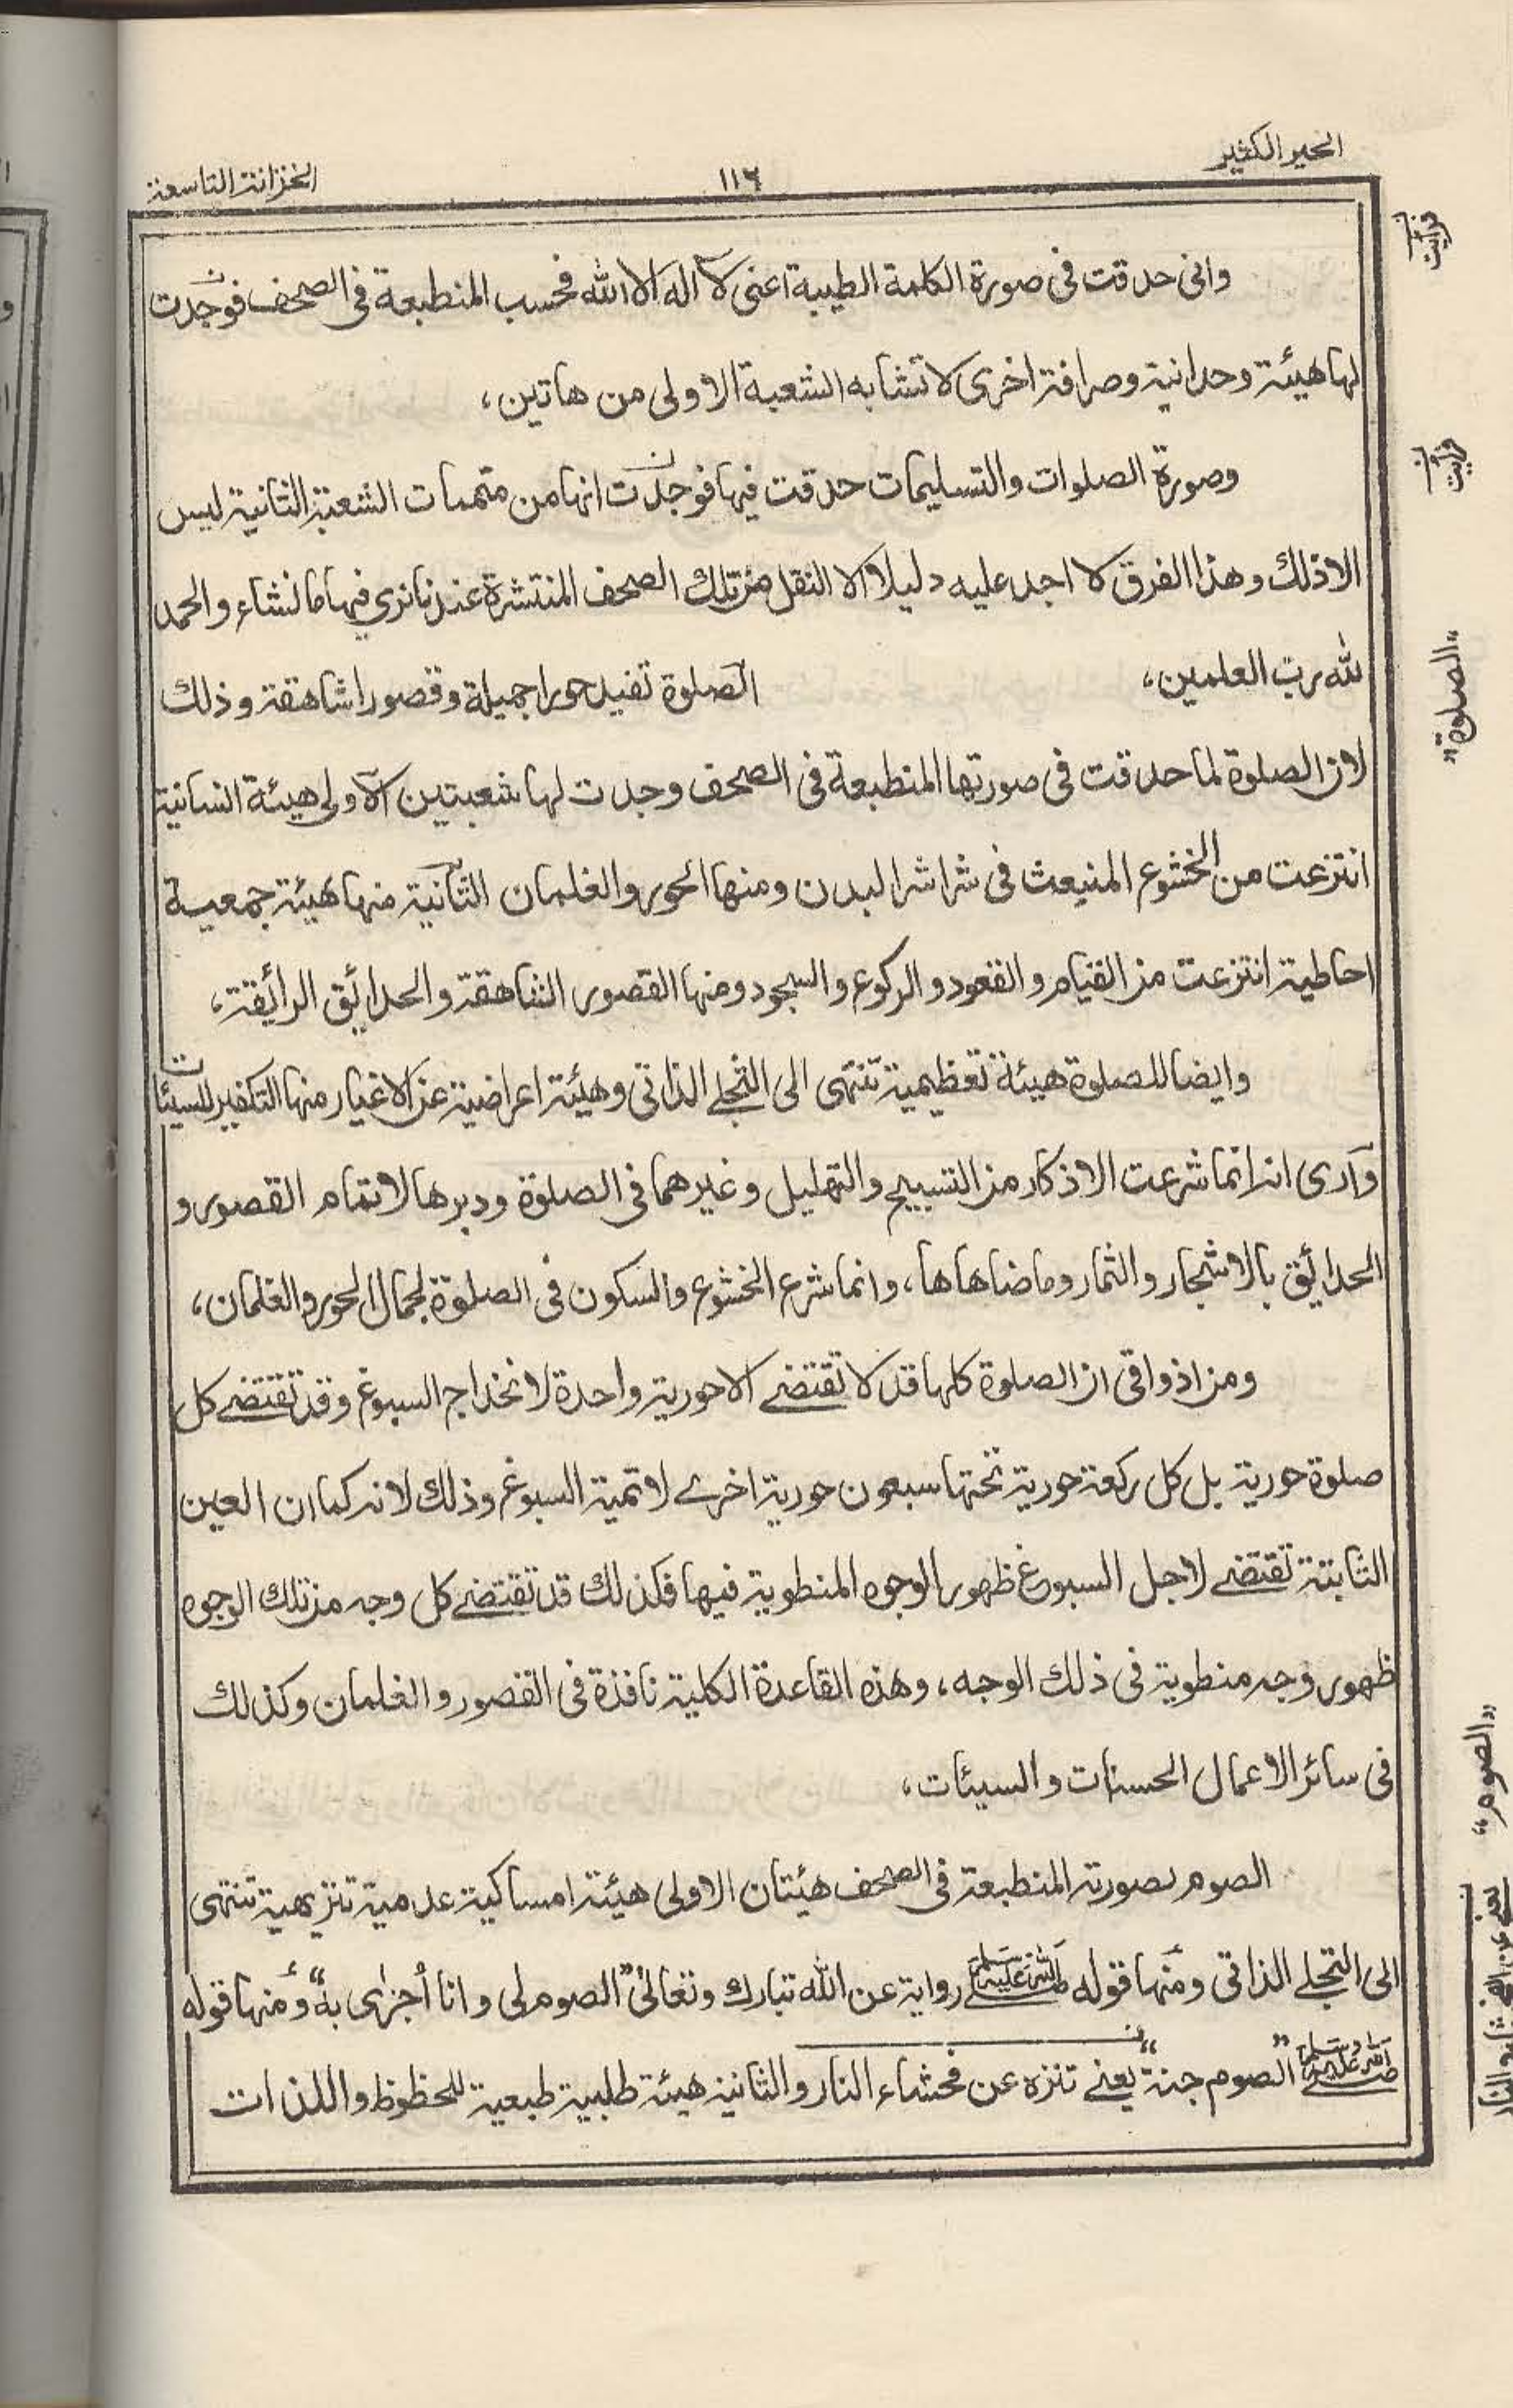 الخير الكثير
١١٦
الخزانة التاسعة
وانى حدقت فى صورة الكلمة الطيبة اعنى لا اله الا الله فحسب المنطبعة فى الصحف فوجدت
لها هيئة وحدانية وصرافة اخرى لا تشابه الشعبة الاولى من هاتين،
وصورة الصلوات والتسليمات حدقت فيها فوجدت انها من متممات الشعبة الثانية ليس
الا ذلك وهذا الفرق لا اجد عليه دليلا الا النقل من تلك الصحف المنتشرة عندنا نرى فيها ما نشاء والحمد
لله رب العلمين، الصلوة تفيد حورا جميلة وقصورا شاهقة وذلك
لان الصلوة لما حدقت فى صورتها المنطبعة فى الصحف وجدت لها شعبتين الاولى هيئة انسانية
انتزعت من الخشوع المنبعث فى شراشر البدن ومنها الحور والغلمان الثانية منها هيئة جمعية
احاطية انتزعت من القيام والقعود والركوع والسجود ومنها القصور الشاهقة والحدائق الرائقة،
وايضا للصلوة هيئة تعظيمية تنتهى الى التجلے الذاتى وهيئة اعراضية عن الاغيار منها التكفير للسيئات
وارى انه انما شرعت الاذكار من التسبيح والتهليل وغيرهما فى الصلوة ودبرها لاتمام القصور و
الحدائق بالاشجار والثمار وما ضاهاها، وانما شرع الخشوع والسكون فى الصلوة لجمال الحور والغلمان،
ومن اذواقى ان الصلوة كلها قد لا تقتضے الا حورية واحدة لانخداج السبوغ وقد تقتضے كل
صلوة حورية بل كل ركعة حورية تحتها سبعون حورية اخرے لاتمية السبوغ وذلك لانه كما ان العين
الثابتة تقتضے لاجل السبورغ ظهور الوجوه المنطوية فيها فكذلك قد تقتضے كل وجه من تلك الوجوه
ظهور وجه منطوية فى ذلك الوجه، وهذه القاعدة الكلية نافذة فى القصور والغلمان وكذلك
فى سائر الاعمال الحسنات والسيئات،
الصوم لصورته المنطبعة فى الصحف هيئتان الاولى هيئة امساكية عدمية تنزيهية تنتهى
الى التجلے الذاتى ومنها قوله صلى الله عليه وسلم رواية عن الله تبارك وتعالىٰ "الصوم لى وانا أجزى به" ومنها قوله
صلى الله عليه وسلم "الصوم جنة" يعنے تنزه عن فحشاء النار والثانية هيئة طلبية طبعية للحظوظ واللذات
"الصلوة"
"الصوم"